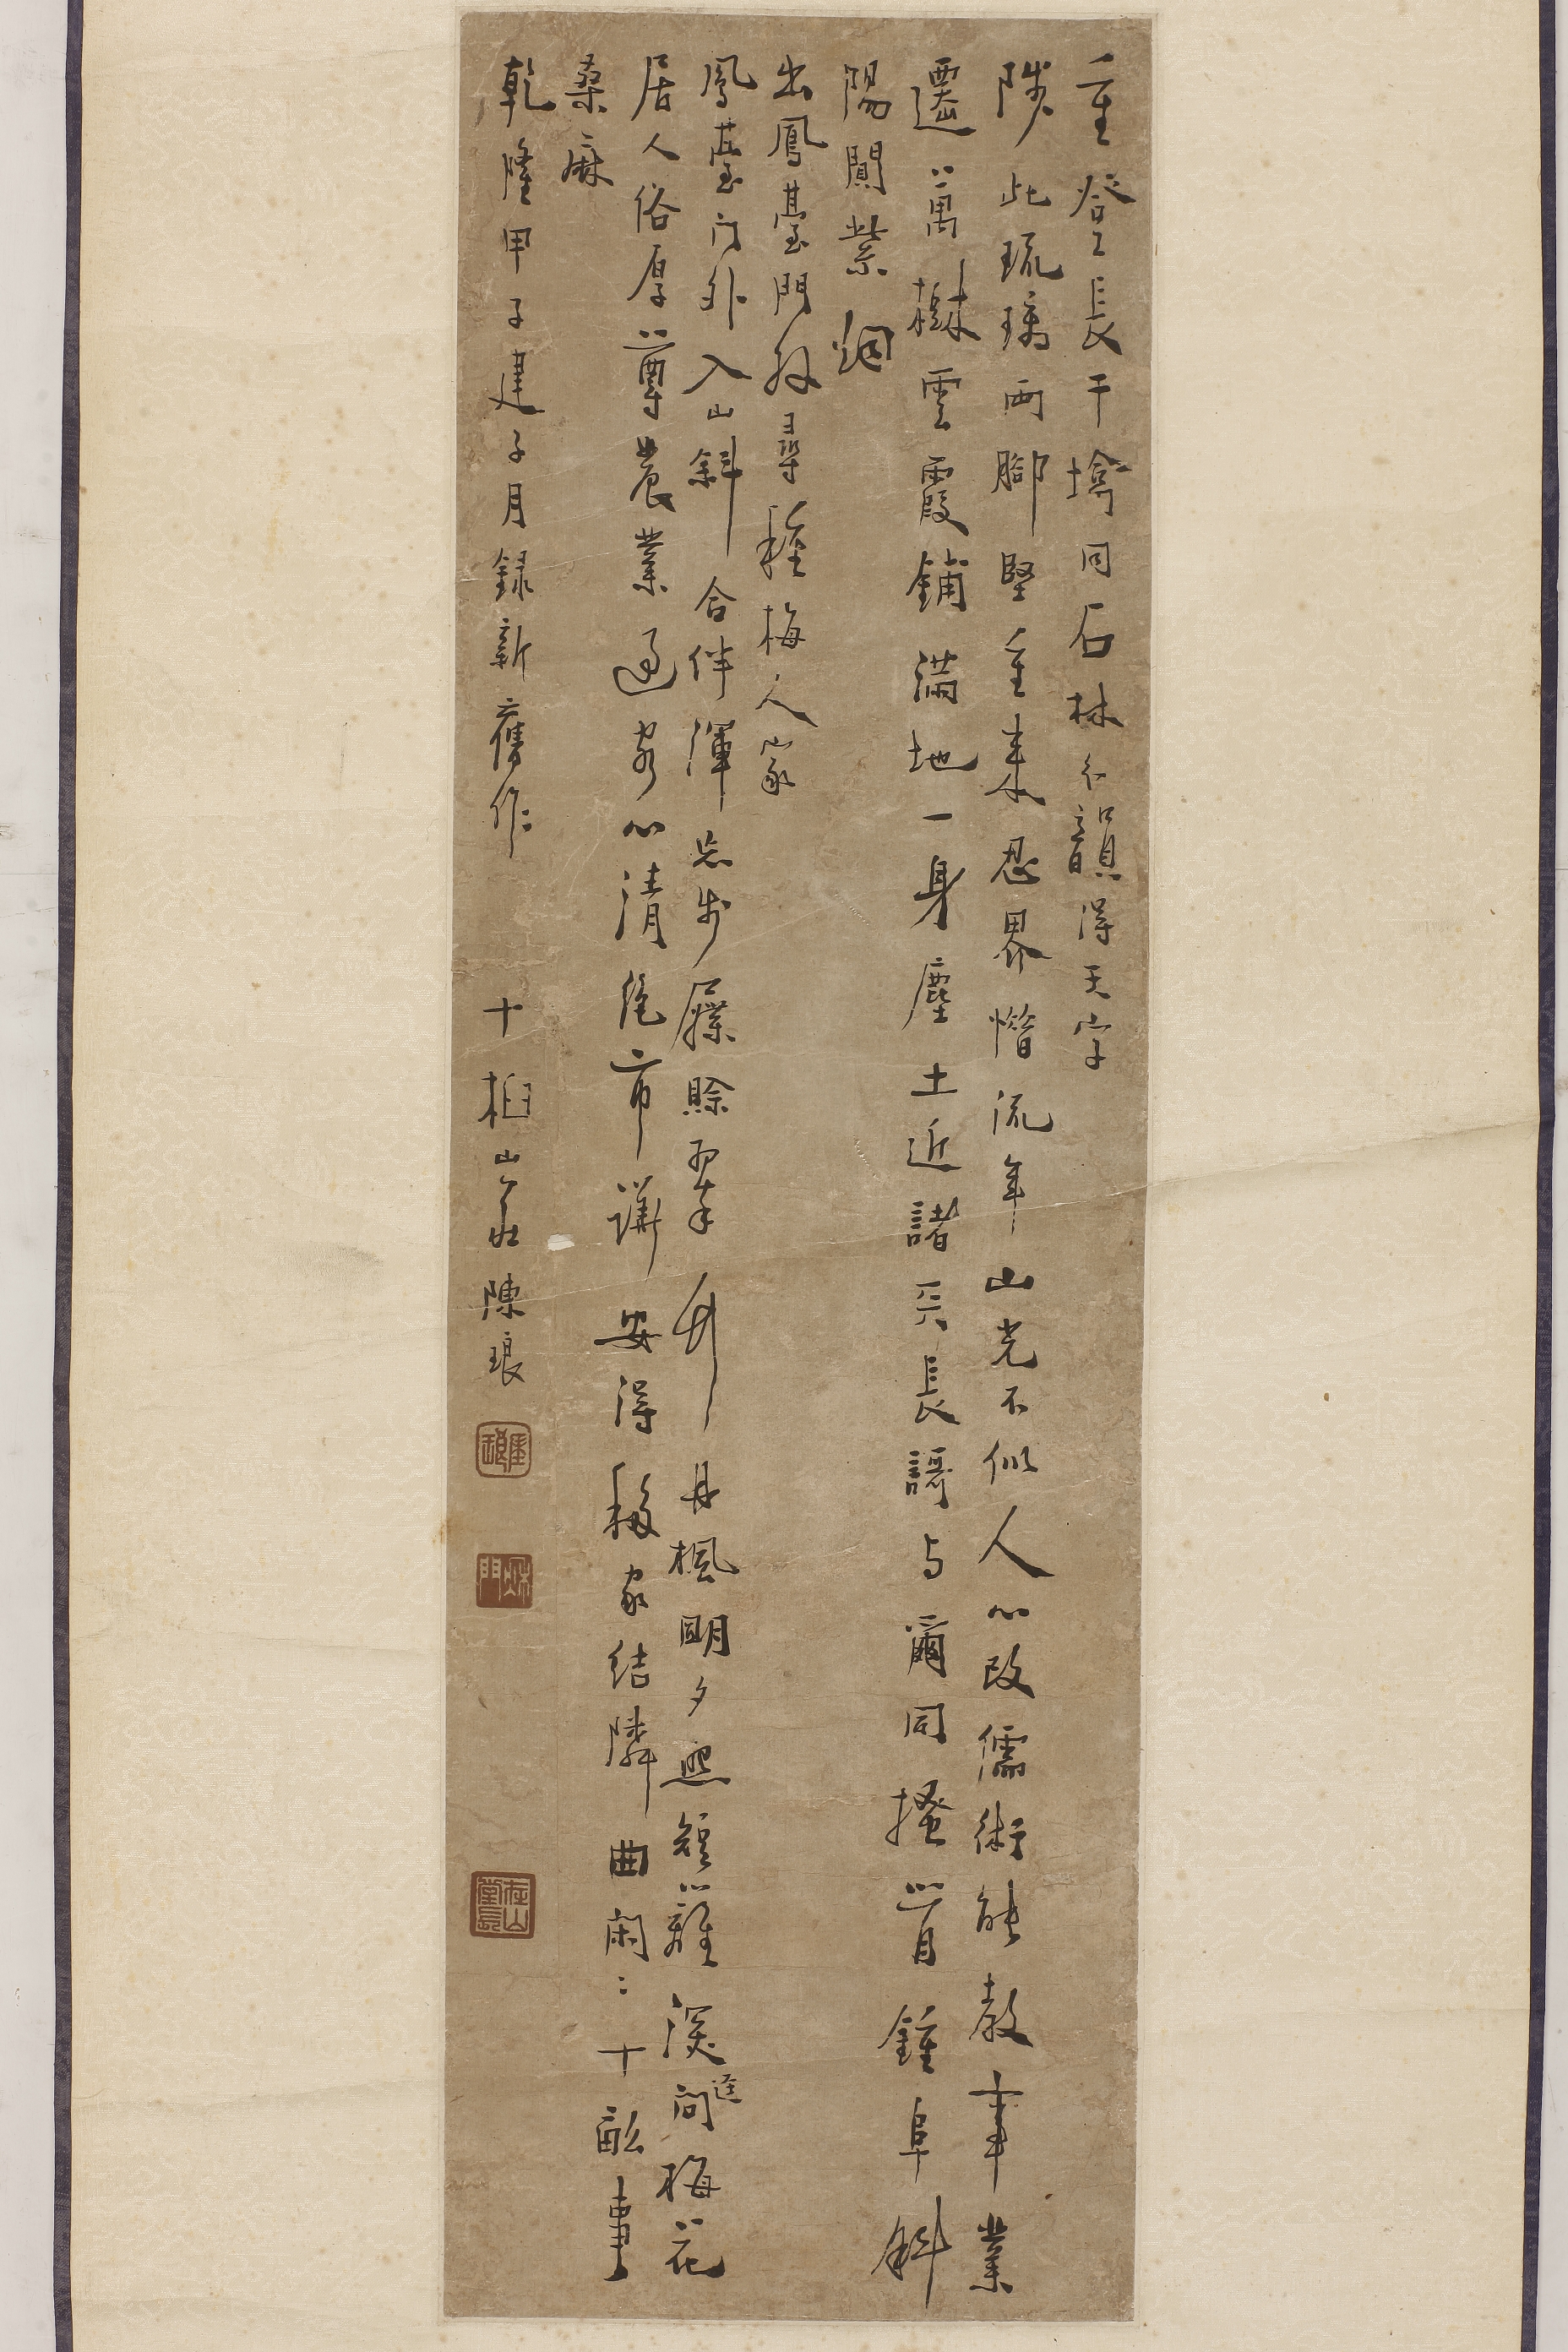 重登長干塔同石林分韻得天字
陟此琉璃兩腳堅重來忍界惜流年山光不似人心改儒術能教事業
遷萬樹雲霞鋪滿地一身塵土近諸天長謌与爾同搔首鍾阜斜
陽閒紫烟
出鳳臺門外尋種梅人家
鳳臺门外入山斜合伴渾忘步屧賒翠竹丹楓明夕照短籬深逕問梅花
居人俗厚尊農業過客心清絶市譁安得移家結隣曲閑〻十畝事
桑麻
乾隆甲子建子月録新舊作 十柏山莊陳琅